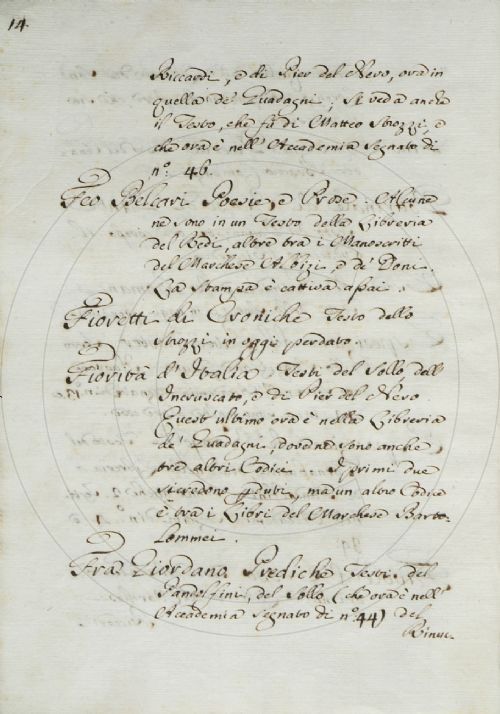 14.
Riccardi, e di Pier del Nero, ora in
quella de' Guadagni; si veda anche
il Testo, che fù di Matteo Strozzi, e
che ora è nell' Accademia segnato di
n.º 46.
Feo Belcari Poesie, e Prose. Alcune
ne sono in un Testo della Libreria
del Redi, altre tra i Manoscritti
del Marchese Albizi, e de' Doni.
La Stampa è cattiva assai.
Fioretti di Croniche Testo dello
Strozzi in oggi perduto
Fiorità d' Italia Testi del Sollo dell'
Inruscato, e di Pier del Nero.
Quest' ultimo ora è nella Libreria
de' Guadagni, dove ne sono anche
tre altri Codici. I primi due
si credono perduti, ma un altro Codice
è tra i Libri del Marchese Barto-
lommei.
Fra Giordano Prediche Testi, del
Pandolfini, del Sollo (che ora è nell'
Accademia segnato di n.º 44) del
Rinuc-